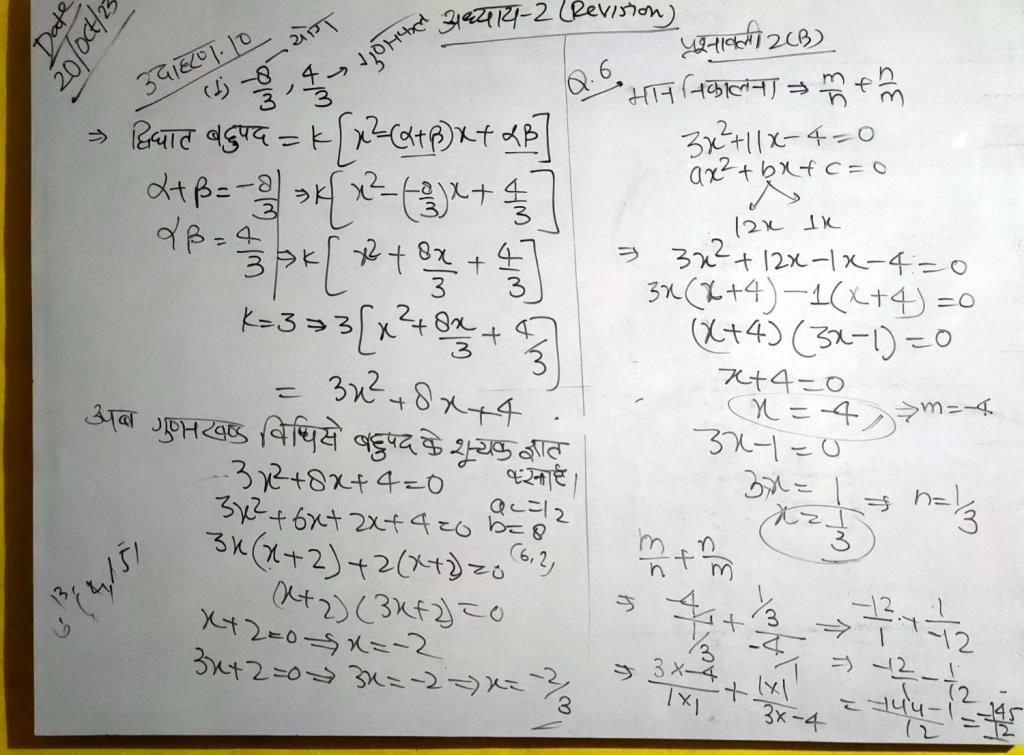 Date
20/oct/23
अध्याय-2 (Revision)
उदाहरण. 10
(i) -8/3 , 4/3 → गुणनफल
योग
⇒ द्विघात बहुपद = K[x²-(α+β)x+ αβ]
α+β = -8/3 ⇒ K[x² - (-8/3)x + 4/3]
αβ = 4/3 ⇒ K[x² + 8x/3 + 4/3]
K=3 ⇒ 3[x² + 8x/3 + 4/3]
= 3x² + 8x + 4.
अब गुणनखण्ड विधि से बहुपद के शून्यक ज्ञात
करना है।
3x²+8x+4=0
ac=12
3x²+6x+2x+4=0 b=8
3x(x+2)+2(x+2)=0 (6,2)
(x+2)(3x+2)=0
x+2=0 ⇒ x=-2
3x+2=0 ⇒ 3x=-2 ⇒ x=-2/3
प्रश्नावली 2(B)
Q.6. मान निकालना ⇒ m/n + n/m
3x²+11x-4=0
ax²+bx+c=0
12x 1x
⇒ 3x²+12x-1x-4=0
3x(x+4)-1(x+4)=0
(x+4)(3x-1)=0
x+4=0
x=-4, ⇒ m=-4
3x-1=0
3x=1
x=1/3 ⇒ n=1/3
m/n + n/m
⇒ -4/(1/3) + (1/3)/-4 ⇒ -12/1 + 1/-12
⇒ 3x-4/1x1 + 1x1/3x-4 ⇒ -12/1 - 1/12
= -144-1/12 = -145/12